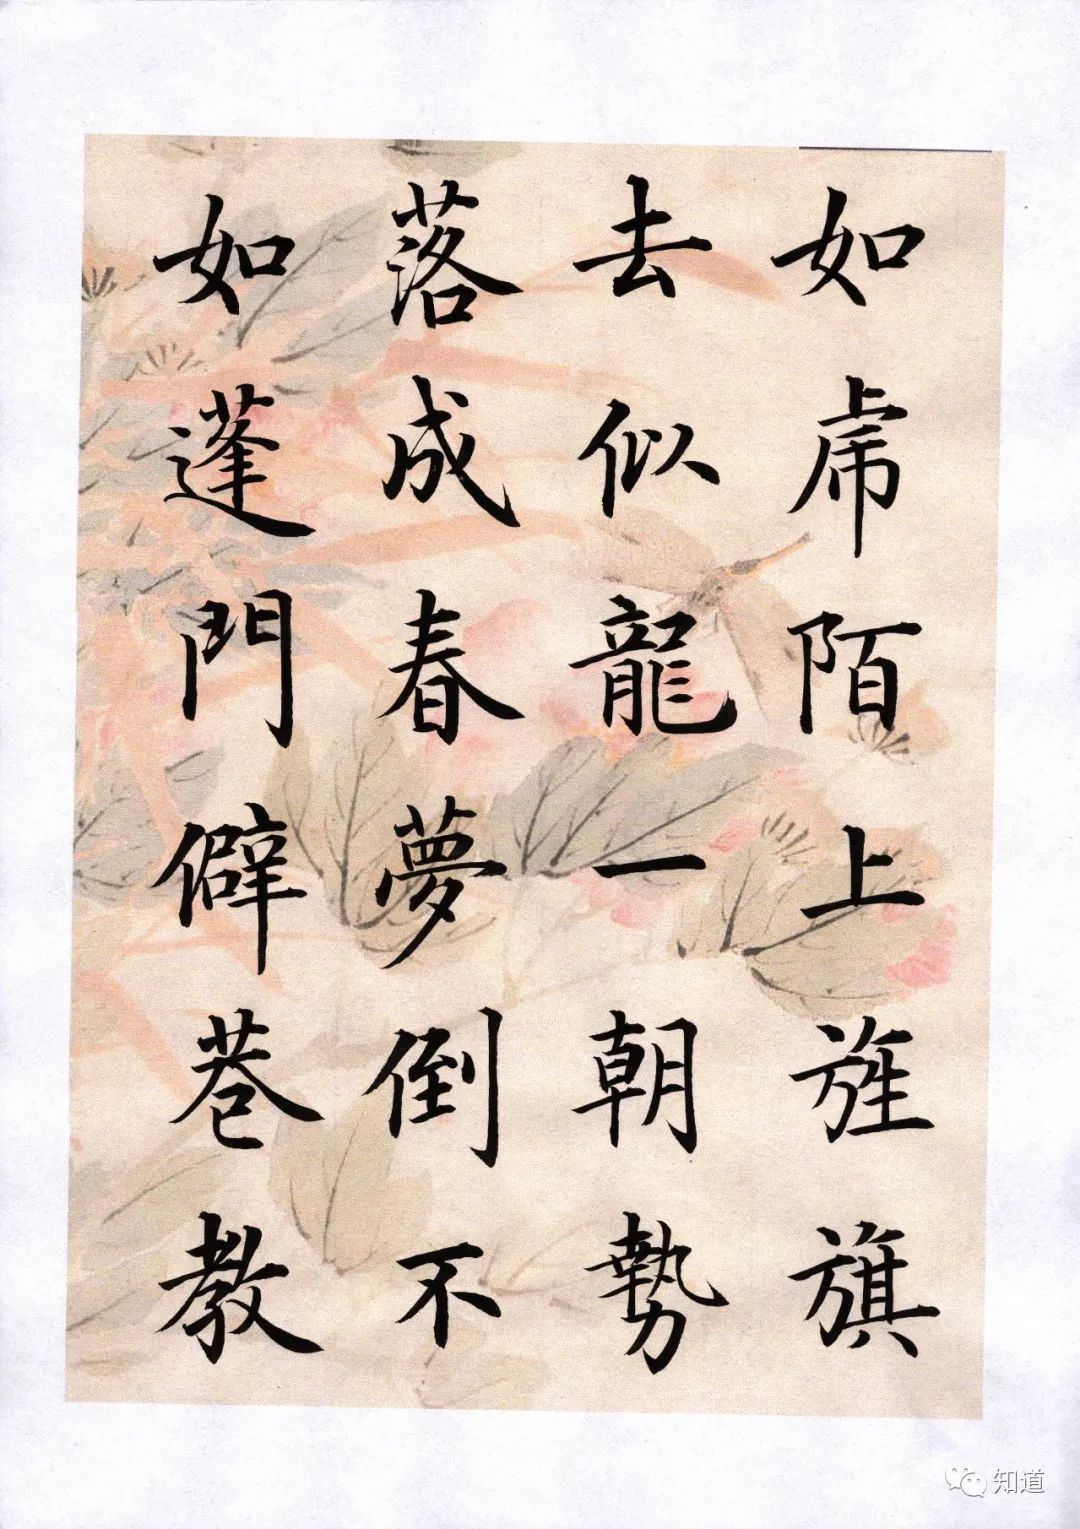 如虎陌上旌旗
去似龍一朝勢
落成春夢倒不
如蓬門僻巷教
知道